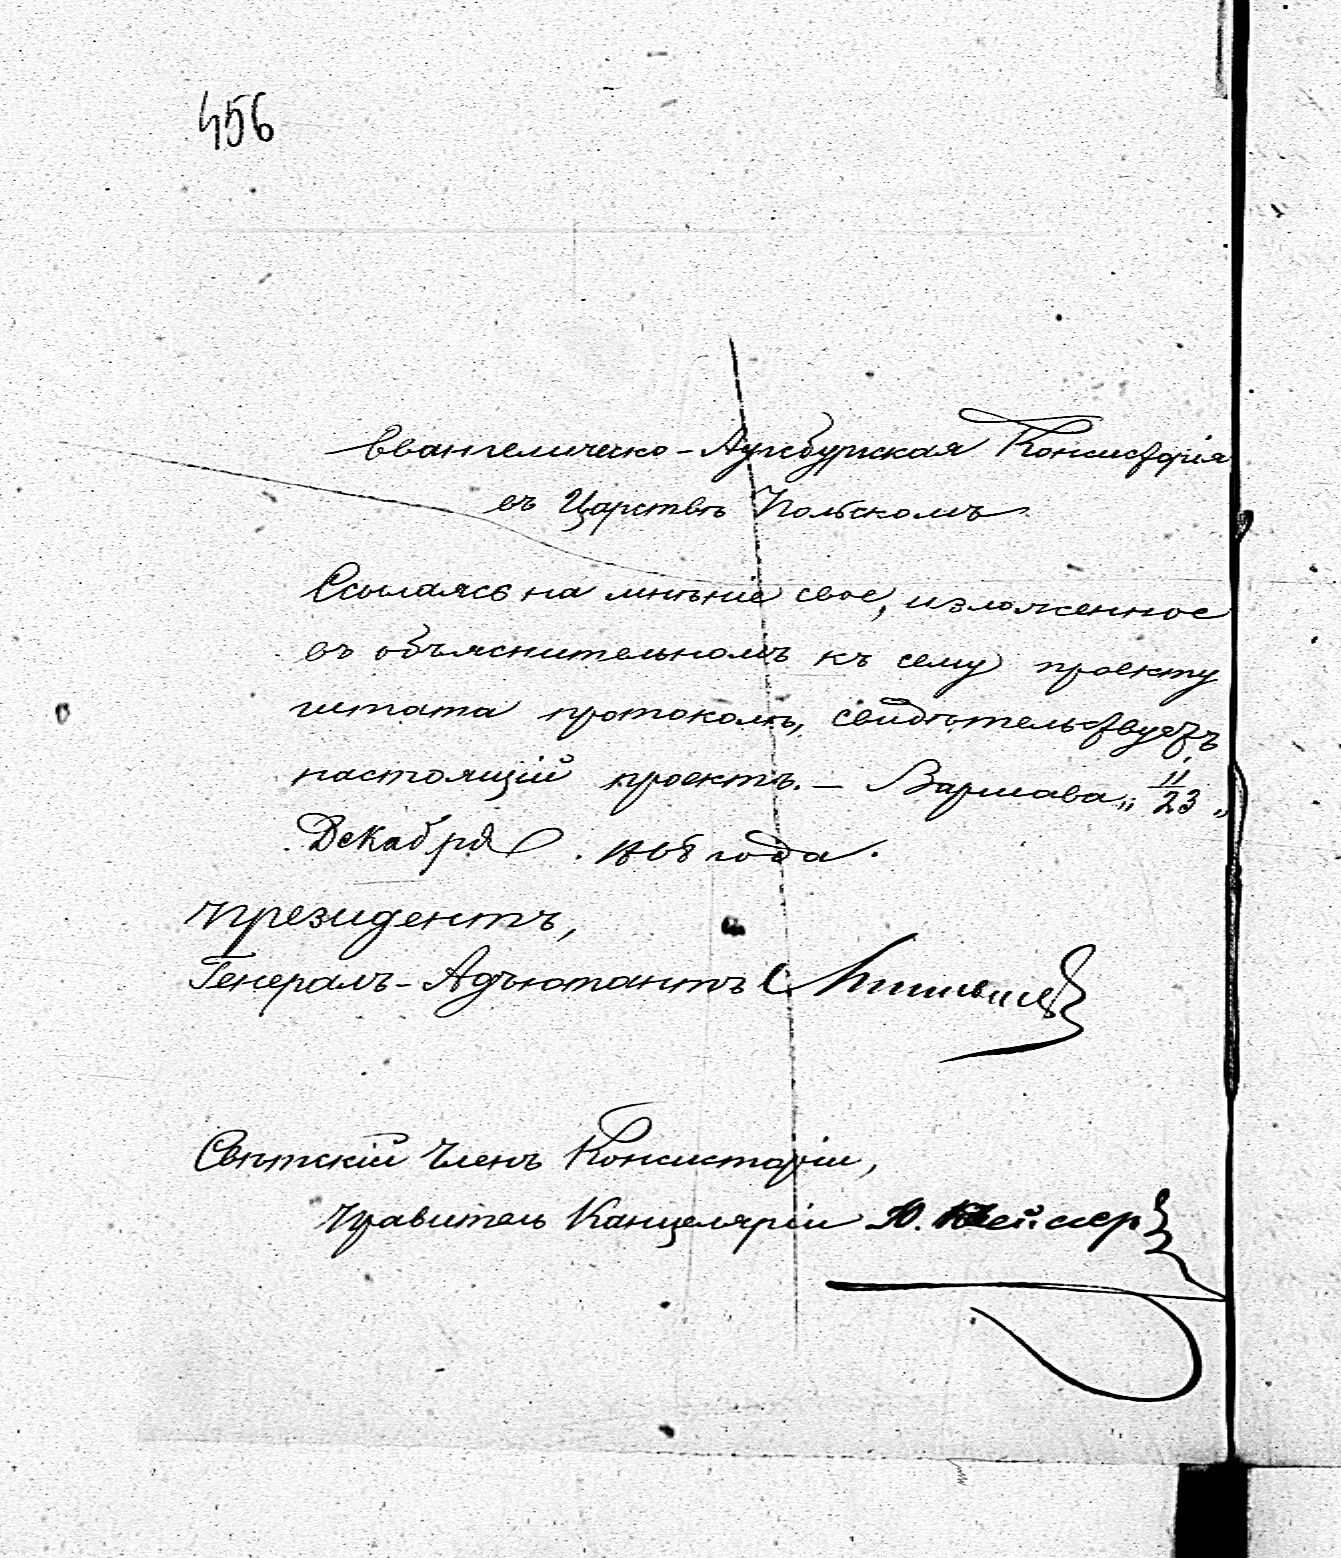 456
Евангелическо-Аугсбургская Консисторія
въ Царствѣ Польскомъ
Ссылаясь на мнѣніе свое, изложенное
въ объяснительномъ къ сему проекту
штата протоколѣ, свидѣтельствуетъ
настоящій проектъ. — Варшава „ 11/23 „
Декабря года.
Президентъ,
Генералъ-Адъютантъ
Свѣтскій Членъ Консисторіи,
Правитель Канцеляріи